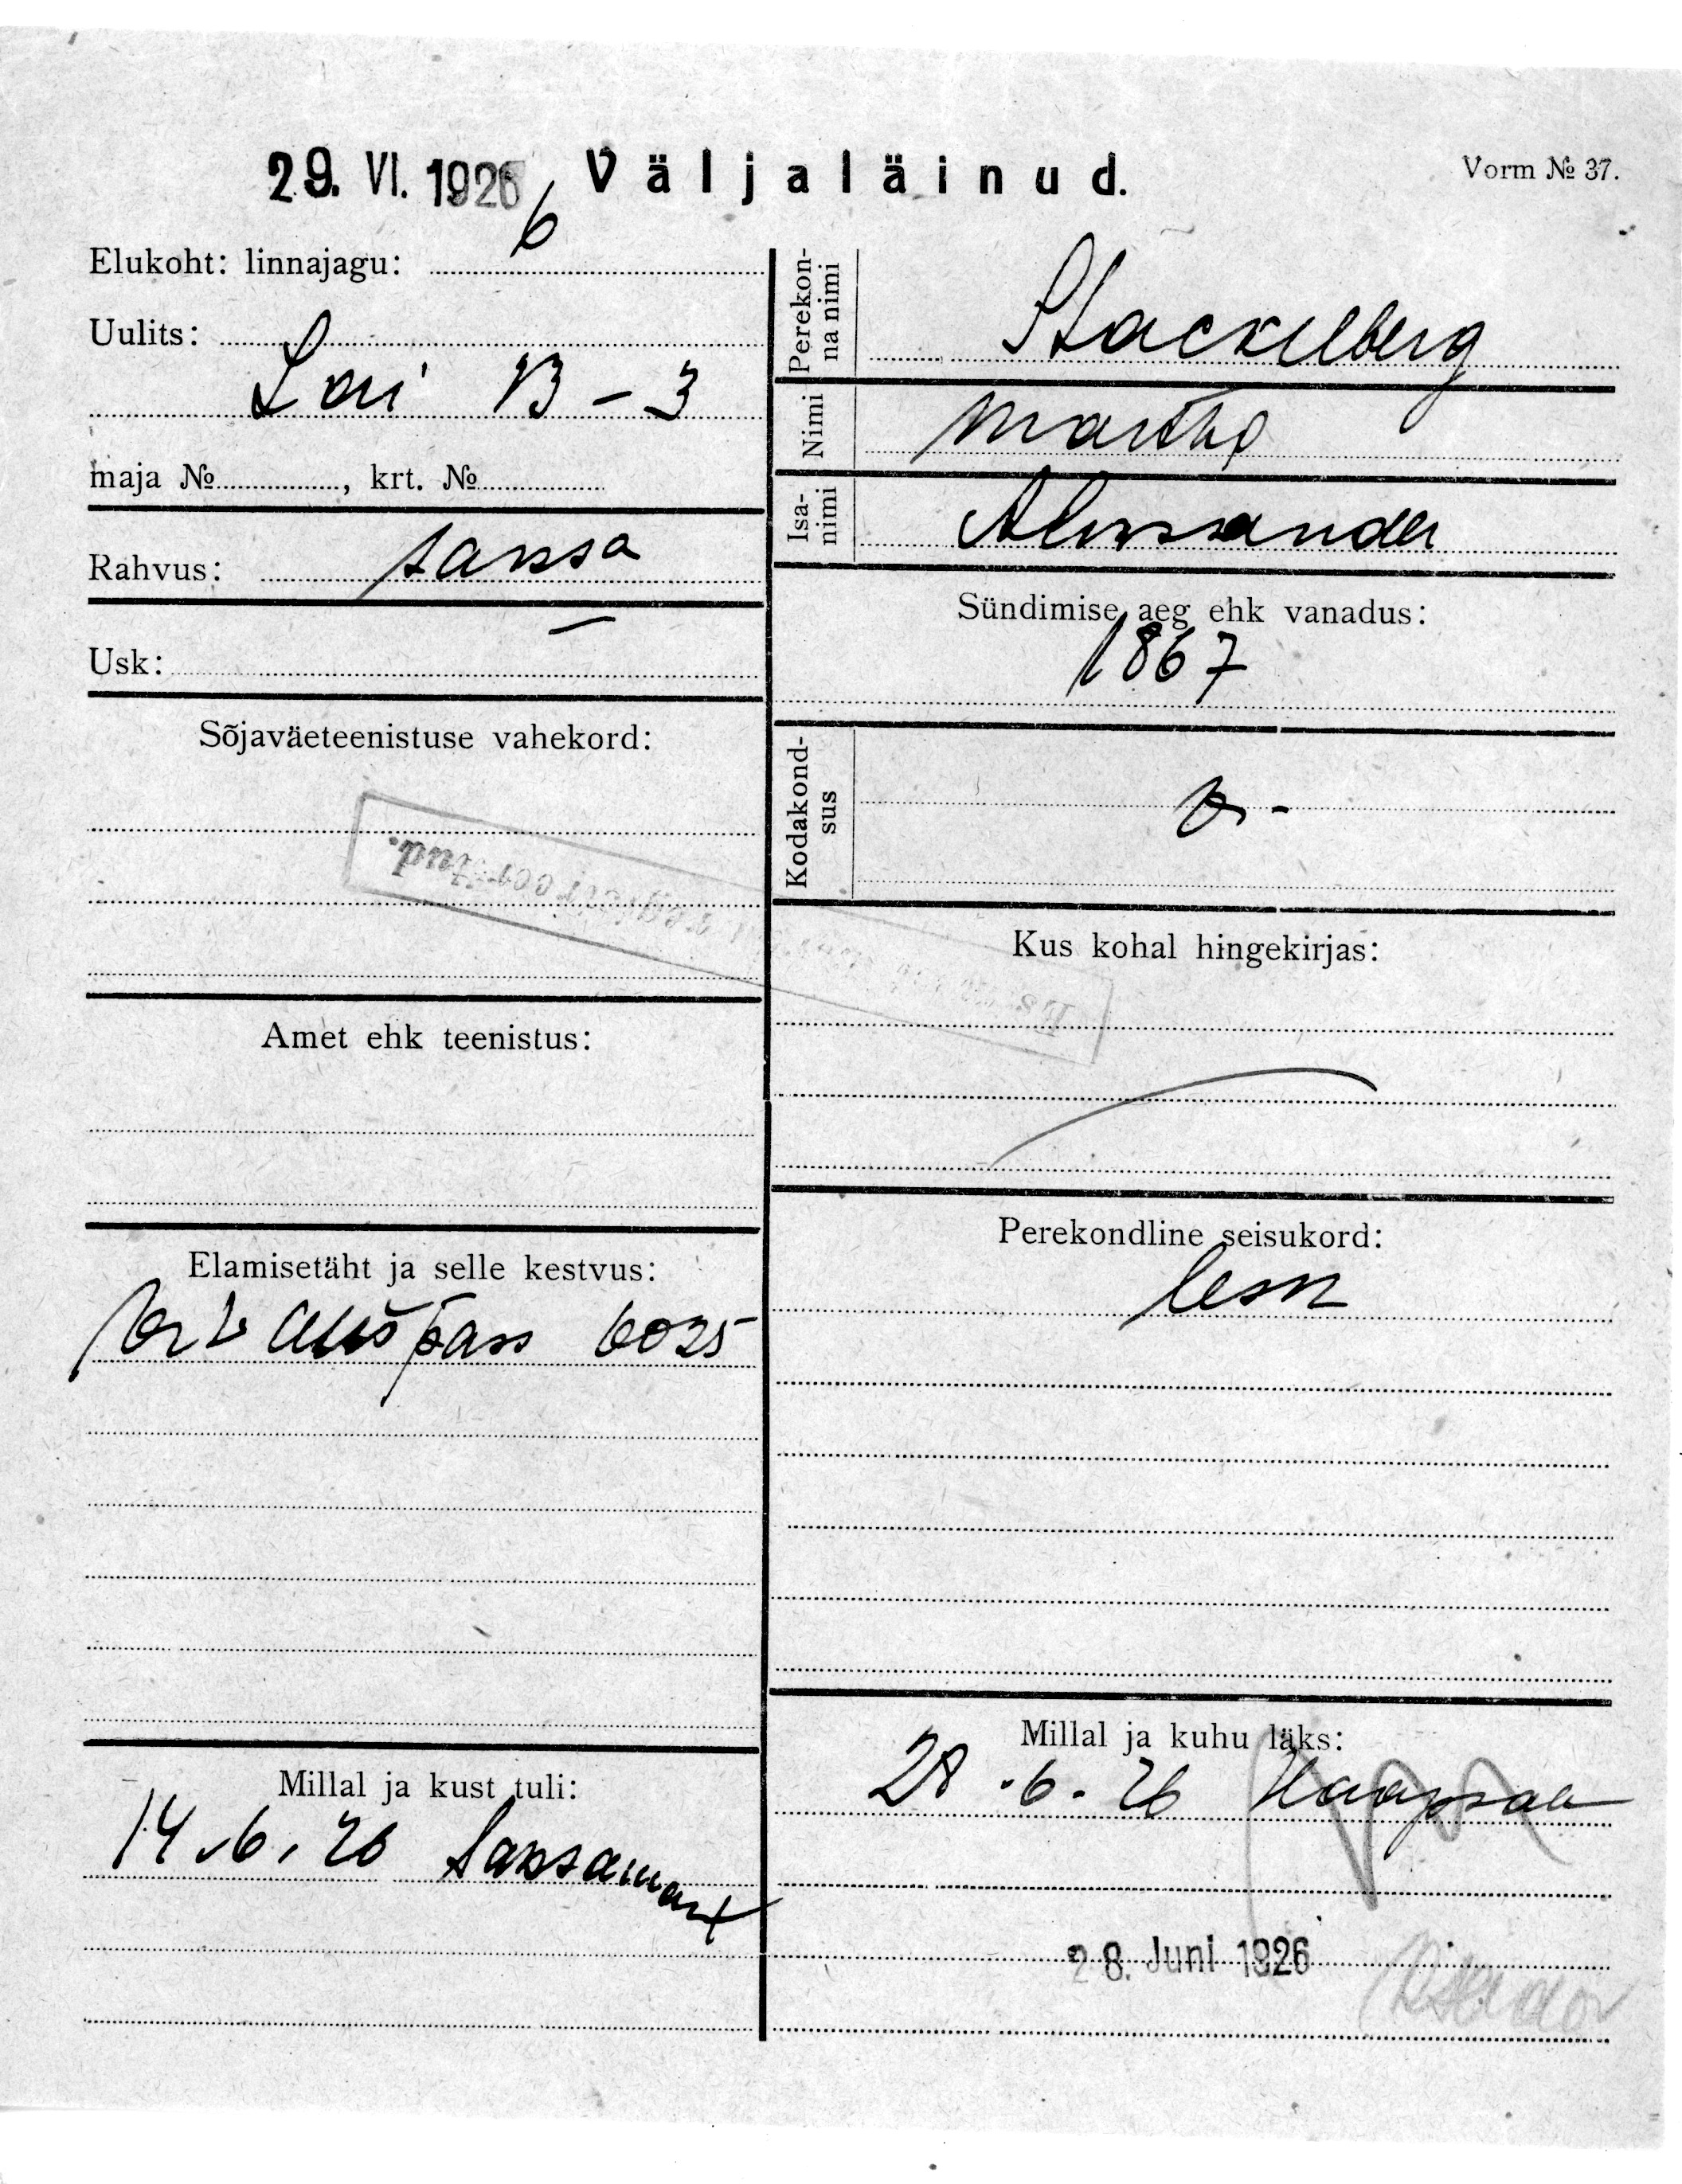 29. VI. 1926 Väljaläinud.
Vorm № 37.
Elukoht: linnajagu: 6
Uulits:
Lai 13 - 3
maja №, krt. №
Rahvus: saksa
Usk: —
Sõjaväeteenistuse vahekord:
registreeritud.
Amet ehk teenistus:
Elamisetäht ja selle kestvus:
pass 6025
Millal ja kust tuli:
14.6.26 Saksamaat
Perekonna nimi
Stackelberg
Nimi
Martha
Isanimi
Aleksander
Sündimise aeg ehk vanadus:
1867
Kodakondsus
Kus kohal hingekirjas:
Perekondline seisukord:
lesk
Millal ja kuhu läks:
28.6.26 Haapsalu
28. Juni 1926